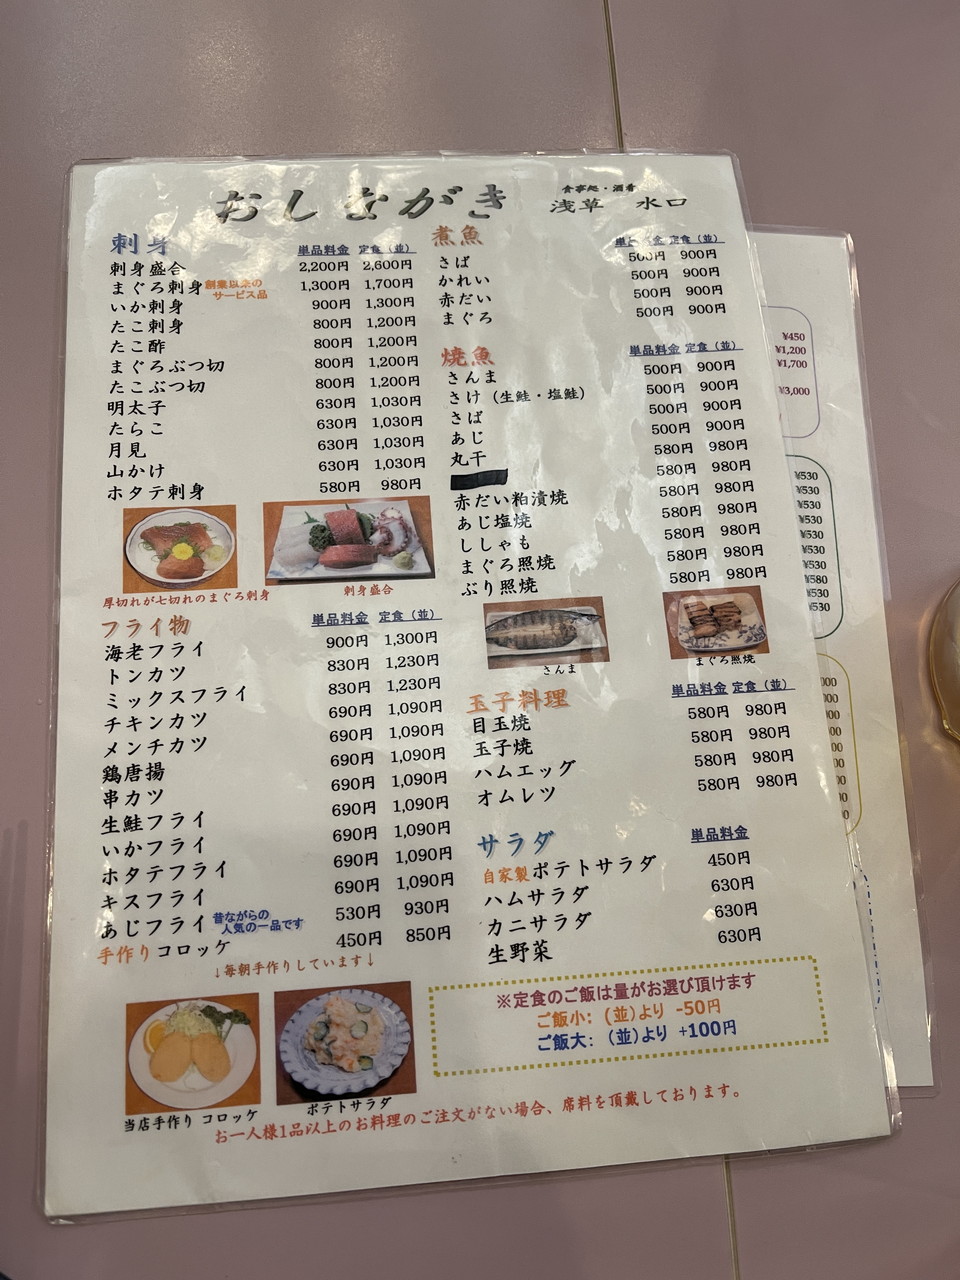 おしながき
食事処・酒肴
浅草 水口
刺身 単品料金 定食(並)
刺身盛合 2,200円 2,600円
まぐろ刺身 創業以来のサービス品 1,300円 1,700円
いか刺身 900円 1,300円
たこ刺身 800円 1,200円
たこ酢 800円 1,200円
まぐろぶつ切 800円 1,200円
たこぶつ切 800円 1,200円
明太子 630円 1,030円
たらこ 630円 1,030円
月見 630円 1,030円
山かけ 630円 1,030円
ホタテ刺身 580円 980円
厚切れが七切れのまぐろ刺身
刺身盛合
フライ物 単品料金 定食(並)
海老フライ 900円 1,300円
トンカツ 830円 1,230円
ミックスフライ 830円 1,230円
チキンカツ 690円 1,090円
メンチカツ 690円 1,090円
鶏唐揚 690円 1,090円
串カツ 690円 1,090円
生鮭フライ 690円 1,090円
いかフライ 690円 1,090円
ホタテフライ 690円 1,090円
キスフライ 690円 1,090円
あじフライ 昔ながらの人気の一品です 530円 930円
手作りコロッケ 450円 850円
↓毎朝手作りしています↓
当店手作り コロッケ
ポテトサラダ
煮魚 定食(並)
さば 500円 900円
かれい 500円 900円
赤だい 500円 900円
まぐろ 500円 900円
焼魚 単品料金 定食(並)
さんま 500円 900円
さけ(生鮭・塩鮭) 500円 900円
さば 500円 900円
あじ 500円 900円
丸干 580円 980円
580円 980円
赤だい粕漬焼 580円 980円
あじ塩焼 580円 980円
ししゃも 580円 980円
まぐろ照焼 580円 980円
ぶり照焼 580円 980円
さんま
まぐろ照焼
玉子料理 単品料金 定食(並)
目玉焼 580円 980円
玉子焼 580円 980円
ハムエッグ 580円 980円
オムレツ 580円 980円
サラダ 単品料金
自家製ポテトサラダ 450円
ハムサラダ 630円
カニサラダ 630円
生野菜 630円
※定食のご飯は量がお選び頂けます
ご飯小:(並)より -50円
ご飯大:(並)より +100円
お一人様1品以上のお料理のご注文がない場合、席料を頂戴しております。
¥450
¥1,200
¥1,700
¥3,000
¥530
¥530
¥530
¥530
¥530
¥530
¥530
¥580
¥530